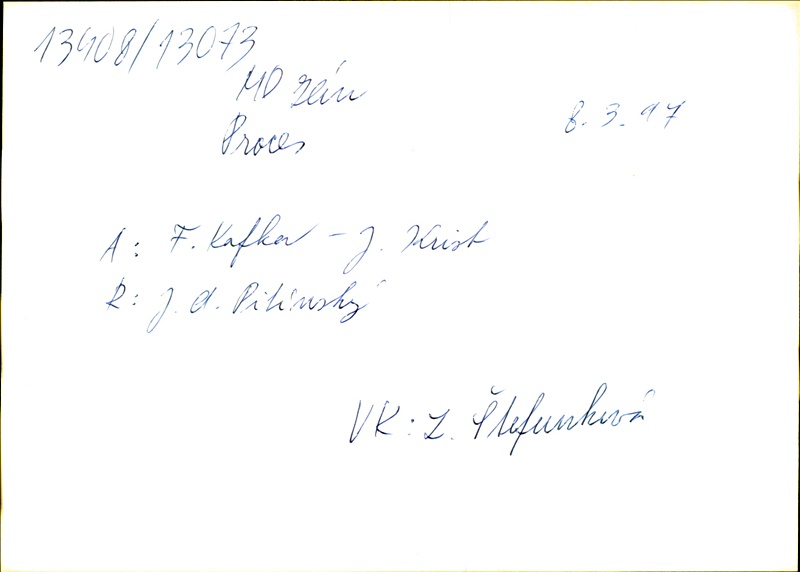 13908/13073
MD Zlín
Proces
8. 3. 97
A: F. Kafka - J. Krist
R: J. A. Pitínský
VK: Z. Štefunková